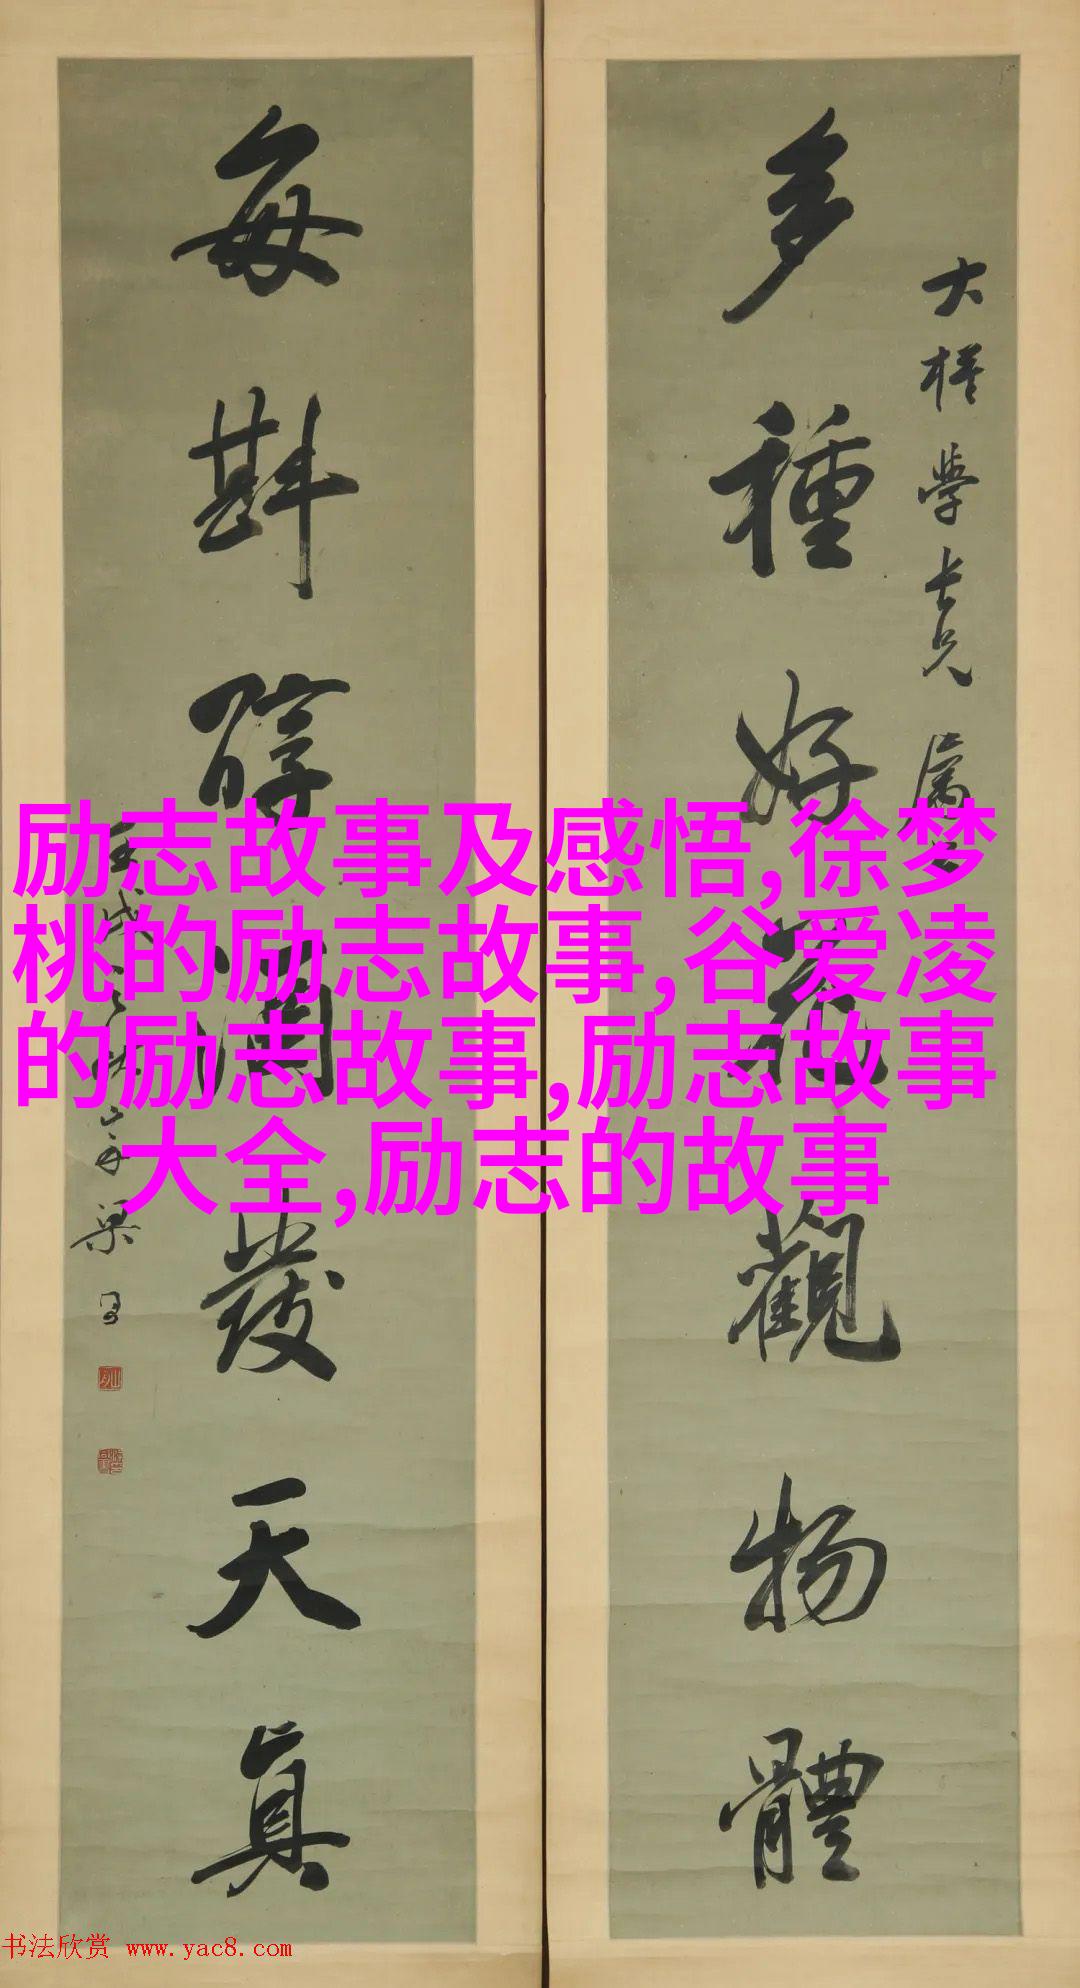 大 學長兄 屬
多種好花觀物體
每斟醇酒發天真
励志故事及感悟,徐梦
桃的励志故事,谷爱凌
的励志故事,励志故事
大全,励志的故事
书法欣赏 www.yac8.com